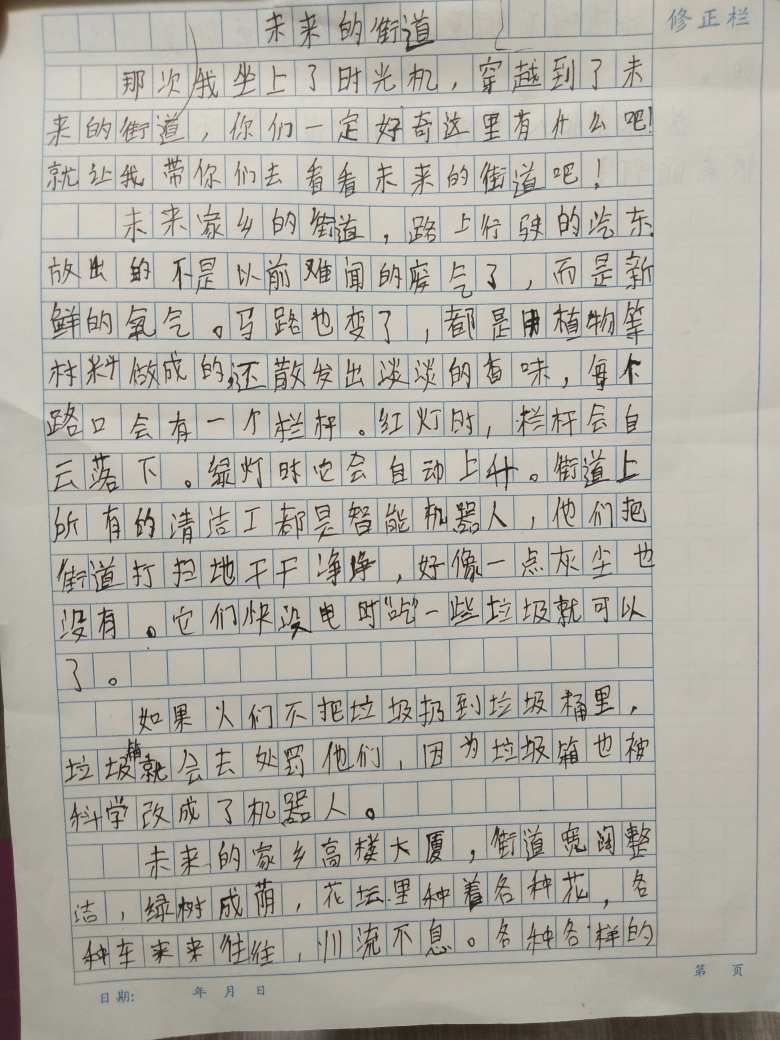 未来的街道
修正栏
那次我坐上了时光机，穿越到了未
来的街道，你们一定好奇这里有什么吧！
就让我带你们去看看未来的街道吧！
未来家乡的街道，路上行驶的汽车
放出的不是以前难闻的废气了，而是新
鲜的氧气。马路也变了，都是用植物等
材料做成的，还散发出淡淡的香味，每个
路口会有一个栏杆。红灯时，栏杆会自
云落下。绿灯时它会自动上升。街道上
所有的清洁工都是智能机器人，他们把
街道打扫地干干净净，好像一点灰尘也
没有。它们快没电时“吃”一些垃圾就可以
了。
如果人们不把垃圾扔到垃圾桶里，
垃圾桶就会去处罚他们，因为垃圾箱也被
科学改成了机器人。
未来的家乡高楼大厦，街道宽阔整
洁，绿树成荫，花坛里种着各种花，各
种车来来往往，川流不息。各种各样的
日期： 年 月 日
第 页